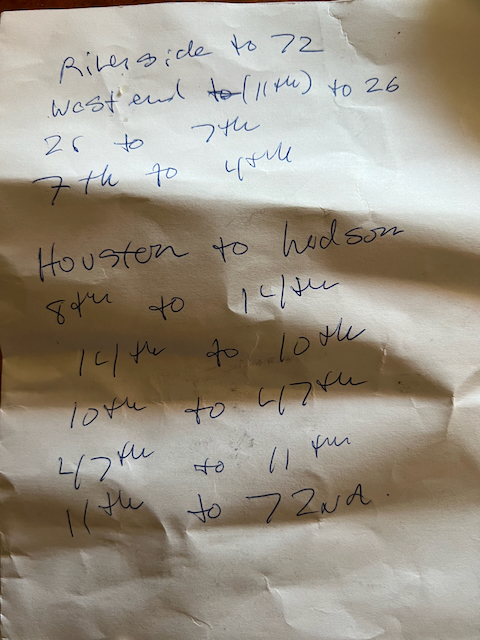 Riverside to 72
West end to (11th) to 26
26 to 7th
7th to 4th
Houston to hudson
8th to 14th
14th to 10th
10th to 47th
47th to 11th
11th to 72nd.